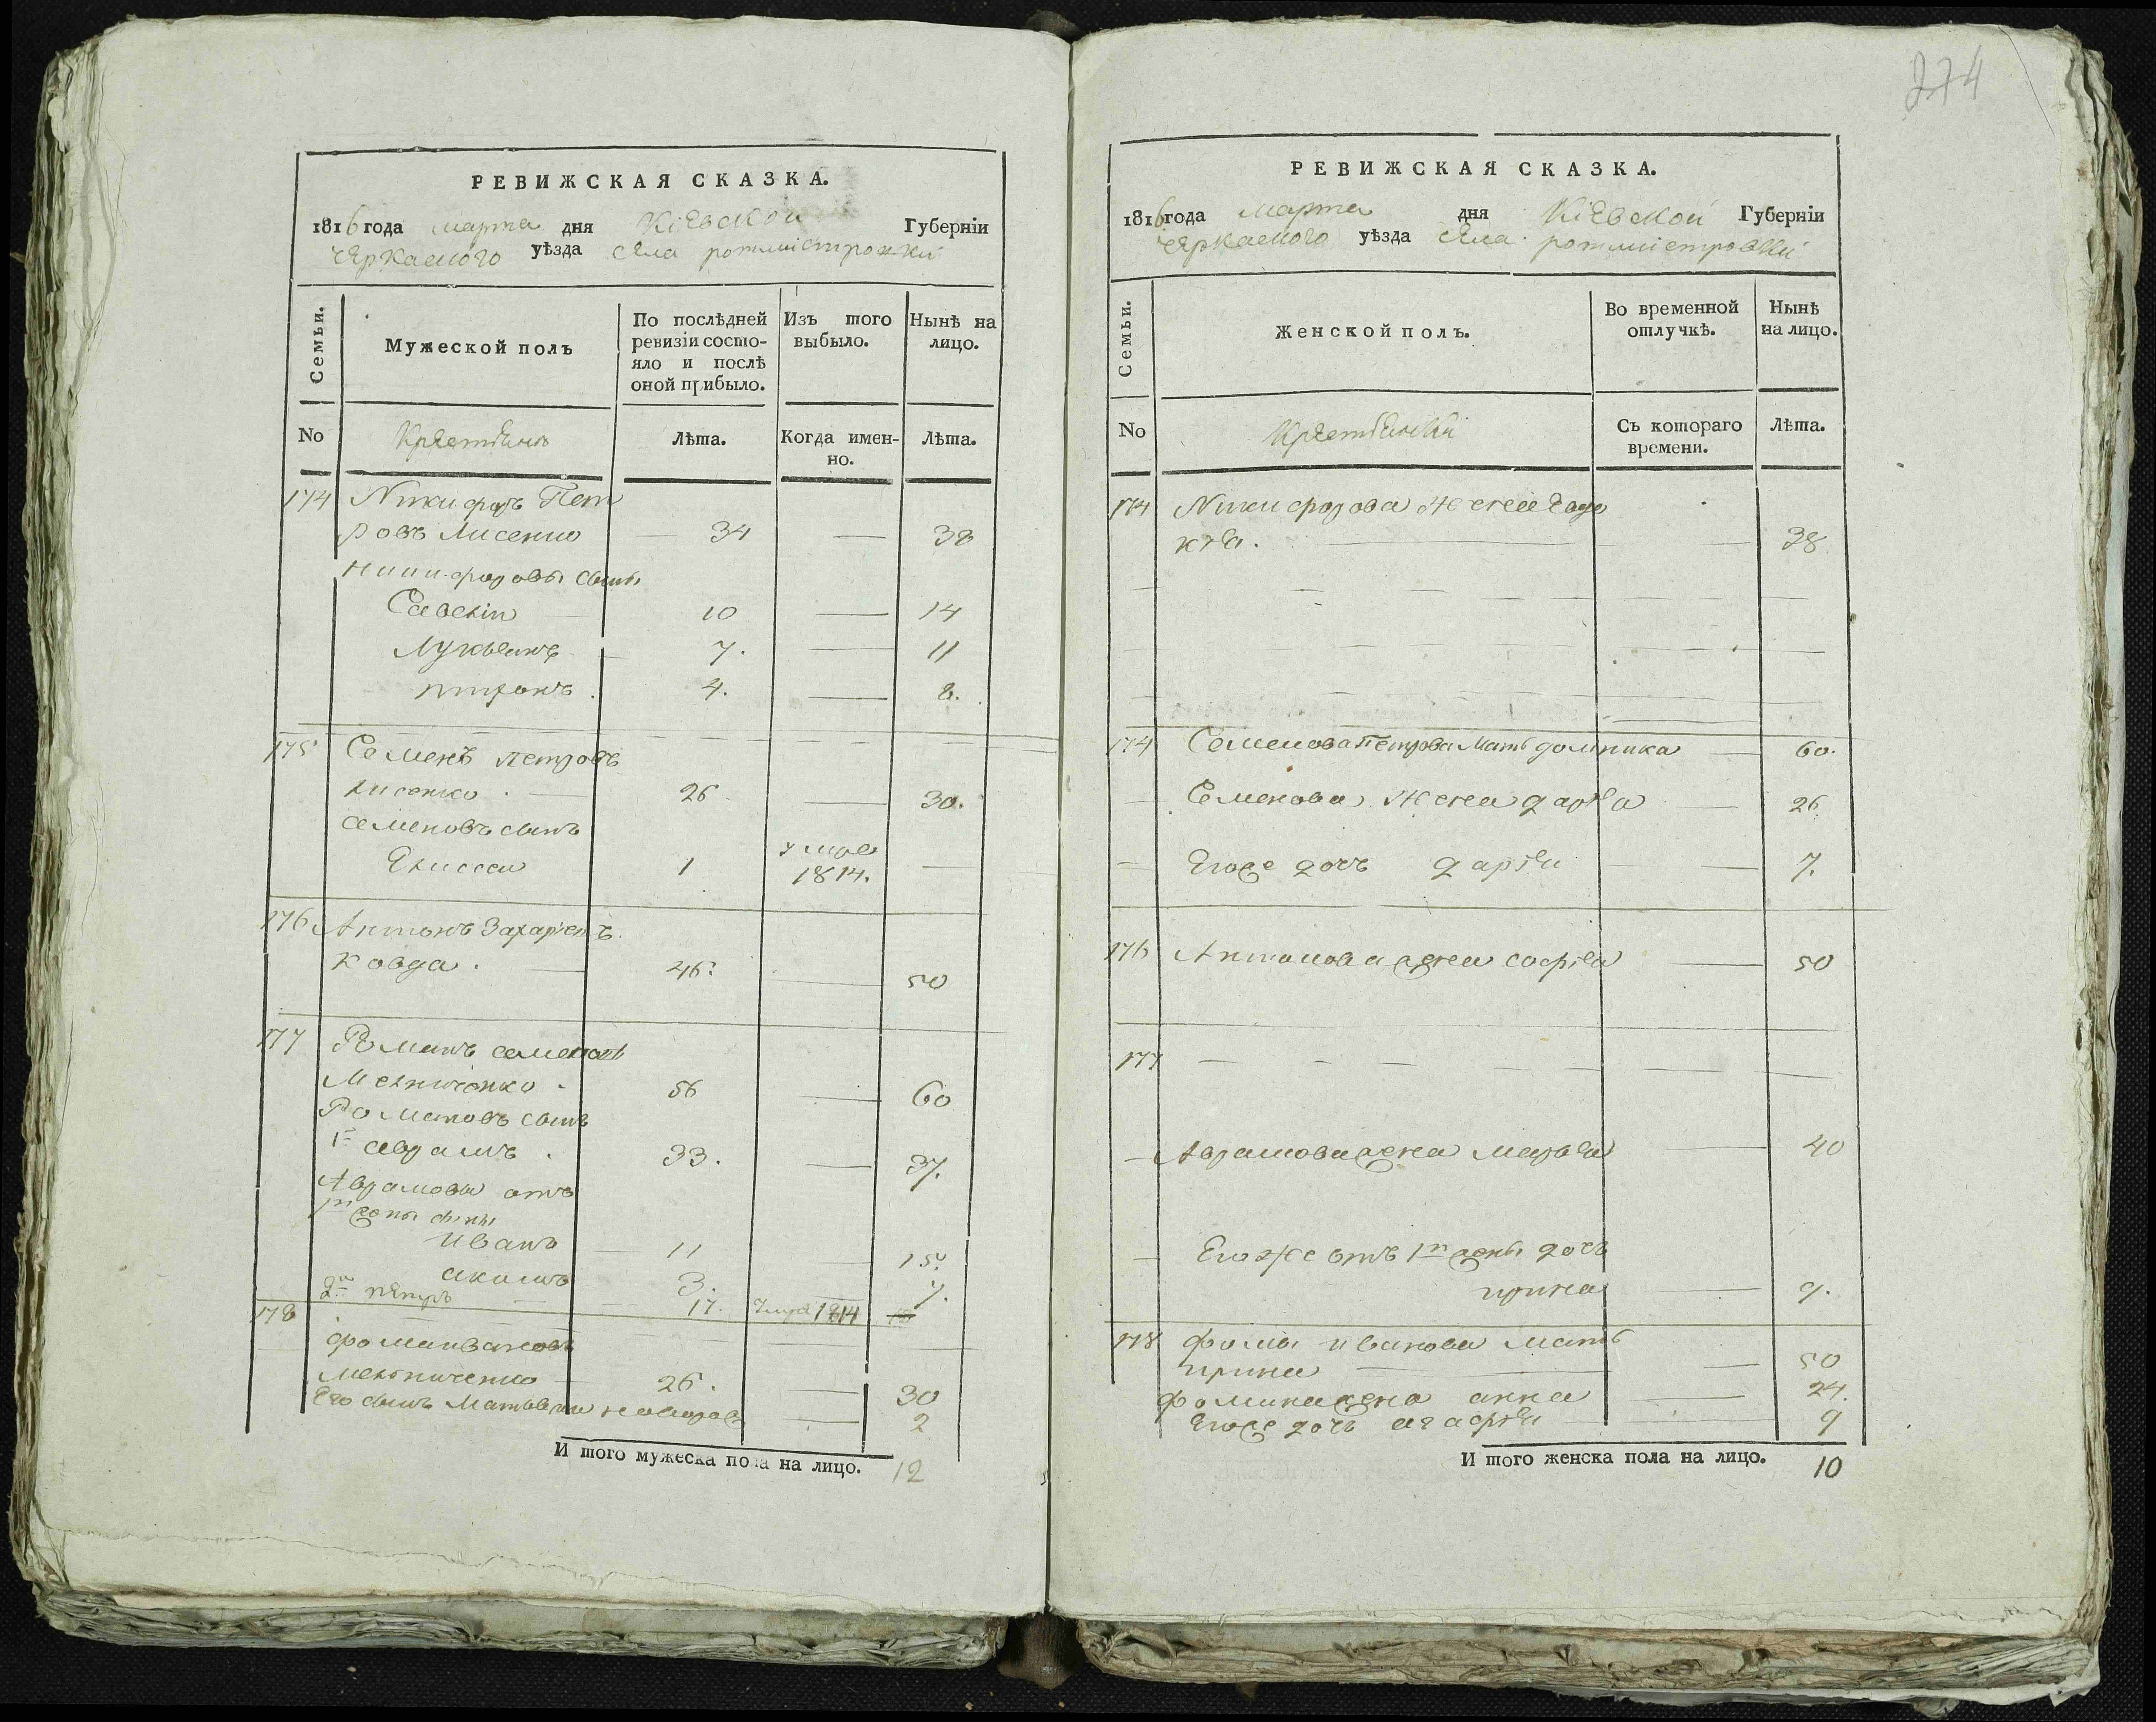 274
РЕВИЖСКАЯ СКАЗКА.
1816 года марта дня Кіевской Губерніи
черкаского уѣзда села ротмистровки
Семьи.
Мужеской полъ
По послѣдней ревизіи состо-
яло и послѣ
оной прибыло.
Изъ того выбыло.
Нынѣ на лицо.
No
Лѣта.
Когда имен-
но.
Лѣта.
174 Никифоръ Пет
ровъ Лисенко — 34 — 38
Никифоровы сыны
Савелій 10 — 14
Лукьянъ — 7. — 11
4. — 8.
175 Семенъ петровъ
лисенко — 26 — 30.
семеновъ сынъ
Елисей 1 умре 1814. —
176 Антонъ Захаріевъ
Ковда. — 46. — 50
177 Романъ семеновъ
Мелниченко 56 — 60
Романовъ сынъ
1й аврамъ. 33. — 37.
Аврамовы отъ
1й жены сыны
Иванъ — 11 — 15.
акимъ 3. 7.
2й петръ — 17. умре 1814
178
фома ивановъ
мелниченко — 26. — 30
Его сынъ Матвей новорож — 2
И того мужеска пола на лицо. 12
РЕВИЖСКАЯ СКАЗКА.
1816 года марта дня Кіевской Губерніи
черкаского уѣзда села ротмистровки
Семьи.
Женской полъ.
Во временной
отлучкѣ.
Нынѣ
на лицо.
No
Съ котораго
времени.
Лѣта.
174 Никифорова жена Евдо
кія. — 38
174 Семенова Петрова Мать домника — 60.
Семенова жена дарія — 26.
Егоже дочь дарія — 7.
176 Антонова жена софія — 50
177
Аврамова жена марья — 40
Егоже отъ 1й жены дочь
ирина — 9.
178 фомы иванова мать
ирина — 50
фомина жена анна — 24.
Егоже дочь агафія — 9
И того женска пола на лицо. 10